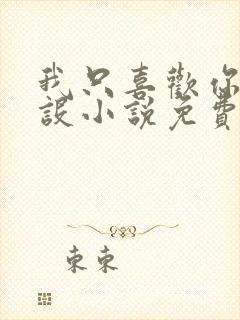 我只喜歡你
設小說免費
東東